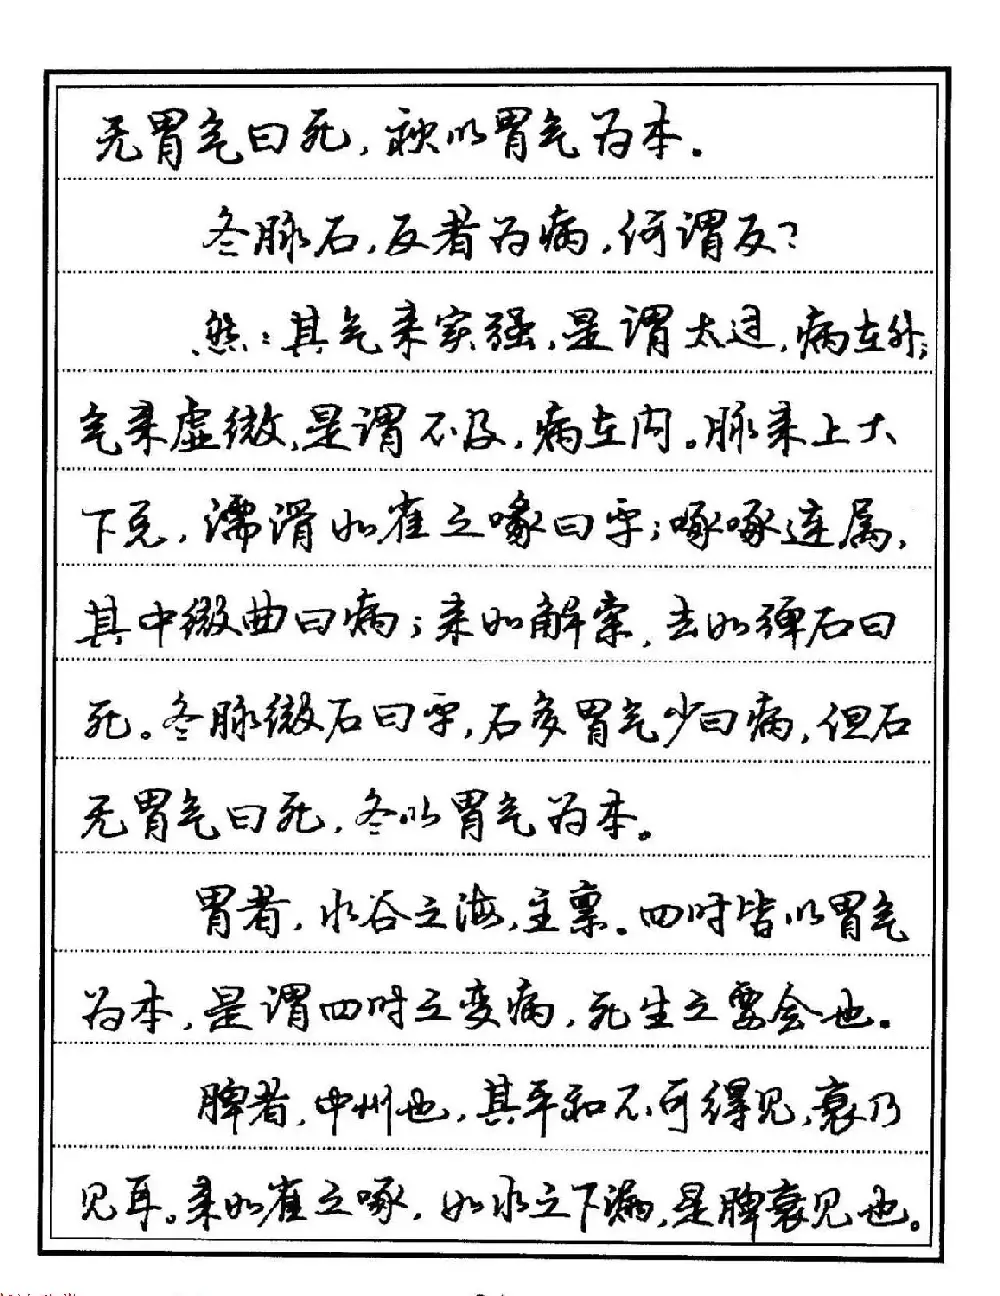 无胃气曰死，秋以胃气为本。
冬脉石，反者为病，何谓反？
然：其气来实强，是谓太过，病在外；
气来虚微，是谓不及，病在内。脉来上大
下兑，濡滑如雀之喙曰平；啄啄连属，
其中微曲曰病；来如解索，去如弹石曰
死。冬脉微石曰平，石多胃气少曰病，但石
无胃气曰死，冬以胃气为本。
胃者，水谷之海，主禀。四时皆以胃气
为本，是谓四时之变病，死生之要会也。
脾者，中州也，其平和不可得见，衰乃
见耳。来如雀之啄，如水之下漏，是脾衰见也。